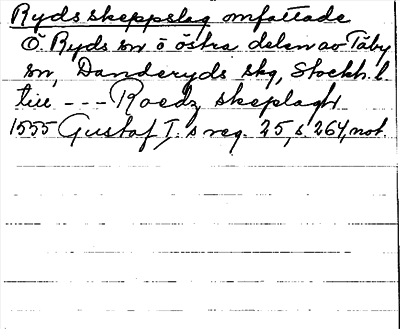 Rydsskeppslag omfattade
Ö. Ryds sn o östra delen av Täby
sn, Danderyds skg, Stockh. l
till --- Roedz skeplagh
1555 Gustaf I:s reg. 25, s 264, not.